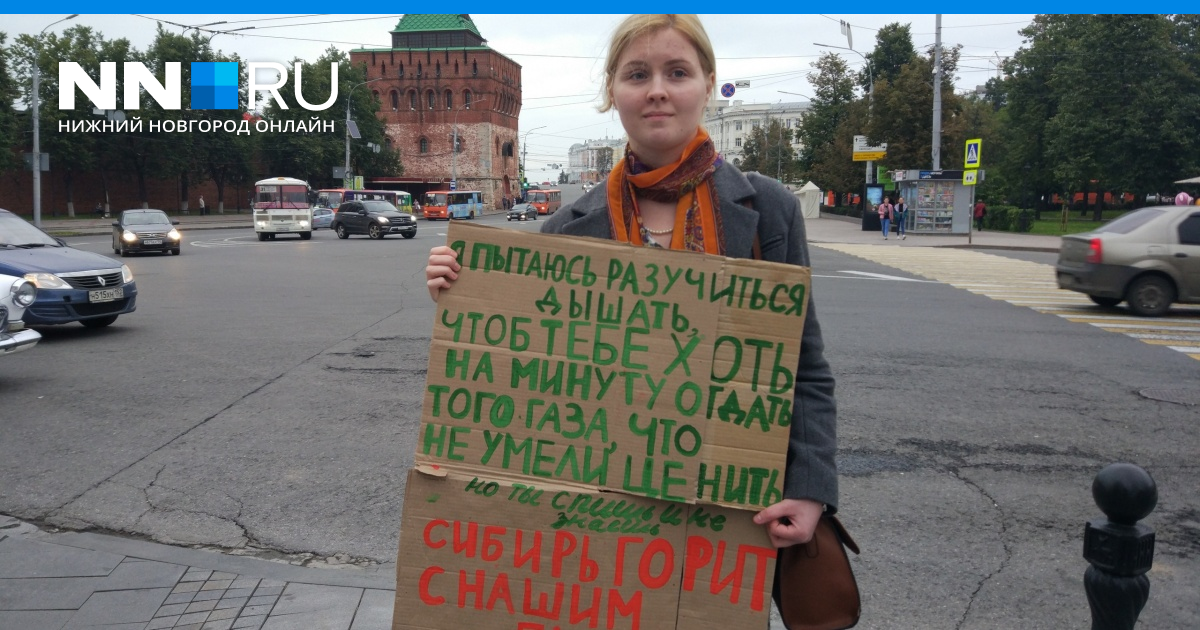 NN RU
НИЖНИЙ НОВГОРОД ОНЛАЙН
Я ПЫТАЮСЬ РАЗУЧИТЬСЯ
ДЫШАТЬ,
ЧТОБ ТЕБЕ ХОТЬ
НА МИНУТУ ОТДАТЬ
ТОГО ГАЗА, ЧТО
НЕ УМЕЛИ ЦЕНИТЬ
но ты спишь и не
знаешь
СИБИРЬ ГОРИТ
С НАШИМ